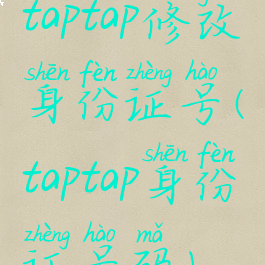 taptap修改
shēn fèn zhèng hào
身份证号(
shēn fèn
taptap身份
zhèng hào mǎ
证号码)